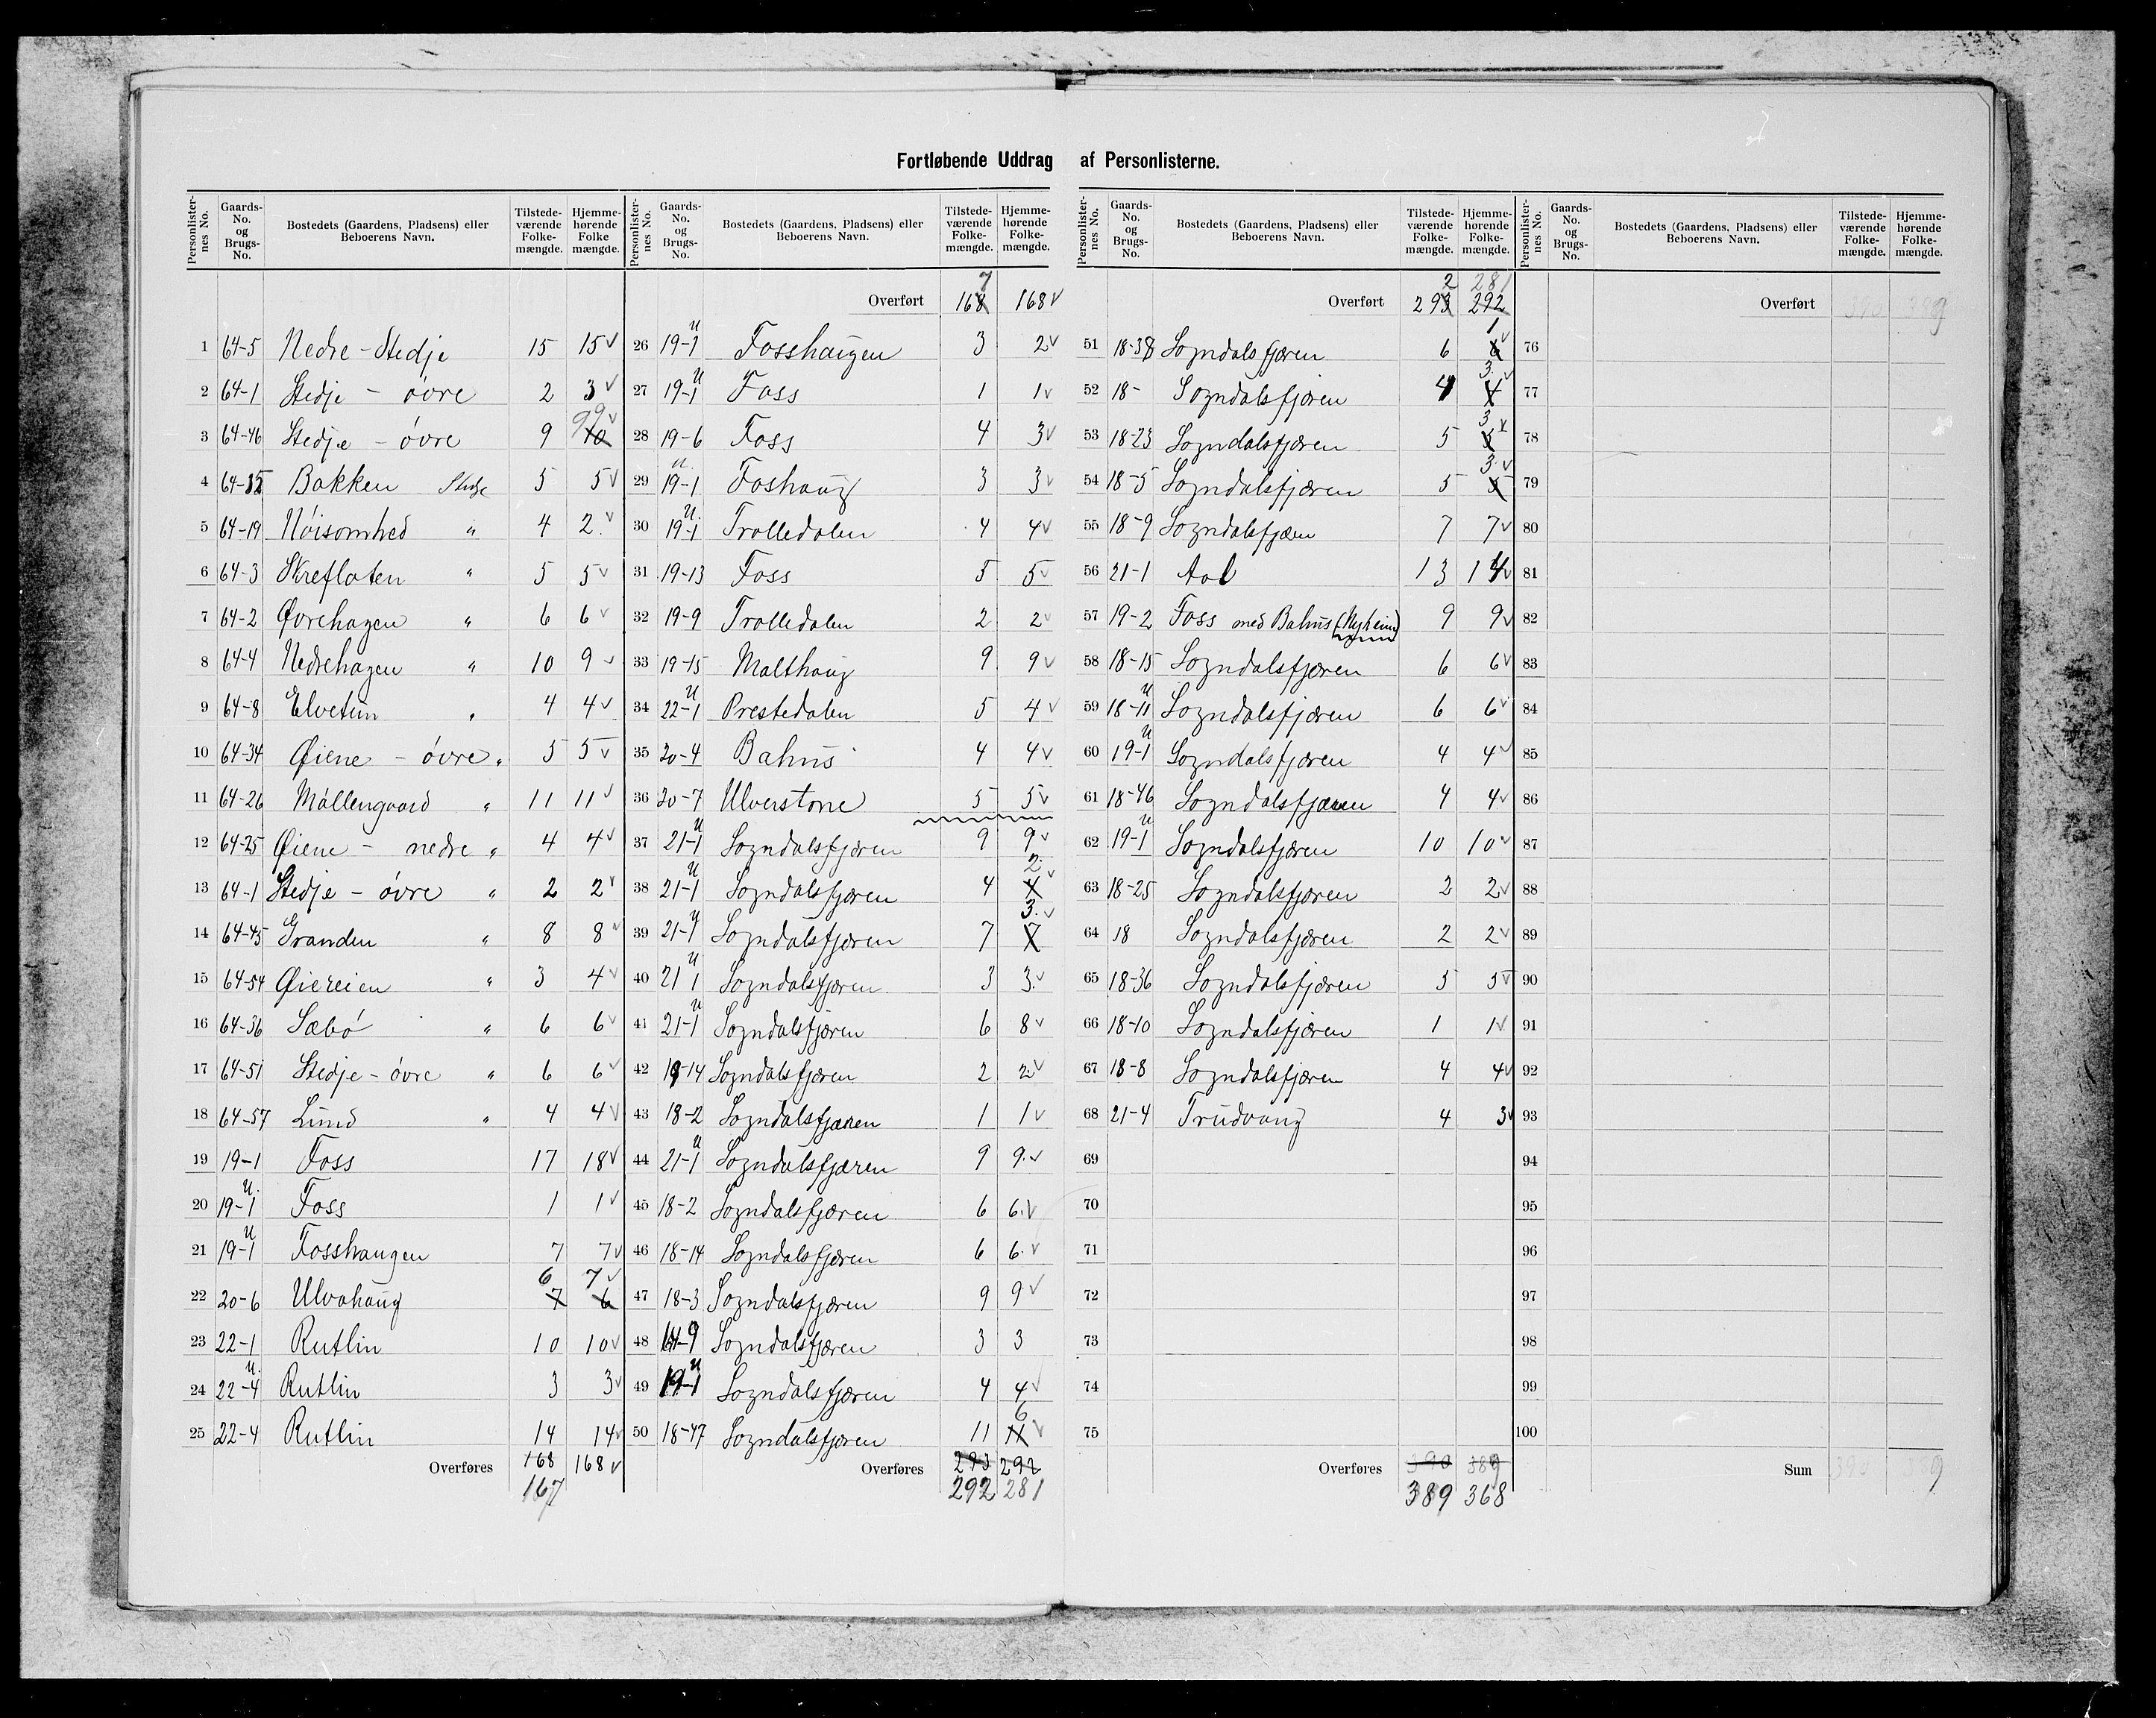 Fortløbende Uddrag af Personlisterne.
Personlister-nes No. Gaards-No. og Brugs-No. Bostedets (Gaardens, Pladsens) eller Beboerens Navn. Tilstede-værende Folke-mængde. Hjemme-hørende Folke mængde.
1 64-5 Nedre-Stedje 15 15 v
2 64-1 Stedje - øvre 2 3 v
3 64-46 Stedje - øvre 9 10 9 v
4 64- Bakken Stedje 5 5 v
5 64-19 Nøisomhed " 4 2 v
6 64-3 Skrefloten " 5 5 v
7 64-2 Øvrehagen " 6 6 v
8 64-4 Nedrehagen " 10 9 v
9 64-8 Elvetun " 4 4 v
10 64-34 Øiene - øvre " 5 5 v
11 64-26 Møllengaard " 11 11 v
12 64-25 Øiene - nedre " 4 4 v
13 64-1 Stedje - øvre " 2 2 v
14 64-45 Granden " 8 8 v
15 64-54 Øiereien " 3 4 v
16 64-36 Sæbø " 6 6 v
17 64-51 Stedje - øvre " 6 6 v
18 64-57 Lund " 4 4 v
19 19-1 Foss 17 18 v
20 19-1 U. Foss 1 1 v
21 19-1 U Fosshaugen 7 7 v
22 20-6 Ulvahaug 7 6 6 7 v
23 22-1 Rutlin 10 10 v
24 22-4 U. Rutlin 3 3 v
25 22-4 Rutlin 14 14 v
Overføres 168 168 v
167
Personlister-nes No. Gaards-No. og Brugs-No. Bostedets (Gaardens, Pladsens) eller Beboerens Navn. Tilstede-værende Folke-mængde. Hjemme-hørende Folke-mængde.
Overført 168 7 168 v
26 19-1 U Fosshaugen 3 2 v
27 19-1 U Foss 1 1 v
28 19-6 Foss 4 3 v
29 19-1 U. Foshaug 3 3 v
30 19-1 U. Trolledalen 4 4 v
31 19-13 Foss 5 5 v
32 19-9 Trolledalen 2 2 v
33 19-15 Malthaug 9 9 v
34 22-1 U Prestedalen 5 4 v
35 20-4 Bahus 4 4 v
36 20-7 Ulverstone 5 5 v
37 21-1 U Sogndalsfjæren 9 9 v
38 21-1 U Sogndalsfjæren 4 4 2. v
39 21-1 U Sogndalsfjæren 7 7 3. v
40 21 1 U Sogndalsfjæren 3 3. v
41 21-1 U Sogndalsfjæren 6 8 v
42 -14 Sogndalsfjæren 2 2 v
43 18-2 Sogndalsfjæren 1 1 v
44 21-1 U Sogndalsfjæren 9 9. v
45 18-2 Sogndalsfjæren 6 6. v
46 18-14 Sogndalsfjæren 6 6. v
47 18-3 Sogndalsfjæren 9 9 v
48 -9 Sogndalsfjæren 3 3
49 19-1 U Sogndalsfjæren 4 4 v
50 18-47 Sogndalsfjæren 11 11 6 v
Overføres 293 292
292 281
Personlister-nes No. Gaards-No. og Brugs-No. Bostedets (Gaardens, Pladsens) eller Beboerens Navn. Tilstede-værende Folke-mængde. Hjemme-hørende Folke-mængde.
Overført 293 2 292 281
51 18-38 Sogndalsfjæren 6 6 1 v
52 18- Sogndalsfjæren 4 4 3. v
53 18-23 Sogndalsfjæren 5 5 3. v
54 18-5 Sogndalsfjæren 5 5 3. v
55 18-9 Sogndalsfjæren 7 7 v
56 21-1 Aal 13 14 v
57 19-2 Foss med Bahus (Nyheim) 9 9 v
58 18-15 Sogndalsfjæren 6 6 v
59 18-11 U Sogndalsfjæren 6 6 v
60 19-1 U Sogndalsfjæren 4 4 v
61 18-46 Sogndalsfjæren 4 4 v
62 19-1 U Sogndalsfjæren 10 10 v
63 18-25 Sogndalsfjæren 2 2 v
64 18 Sogndalsfjæren 2 2 v
65 18-36 Sogndalsfjæren 5 5 v
66 18-10 Sogndalsfjæren 1 1 v
67 18-8 Sogndalsfjæren 4 4 v
68 21-4 Trudvang 4 3 v
69
70
71
72
73
74
75
Overføres 390 389
389 368
Personlister-nes No. Gaards-No. og Brugs-No. Bostedets (Gaardens, Pladsens) eller Beboerens Navn. Tilstede-værende Folke-mængde. Hjemme-hørende Folke-mængde.
Overført
76
77
78
79
80
81
82
83
84
85
86
87
88
89
90
91
92
93
94
95
96
97
98
99
100
Sum